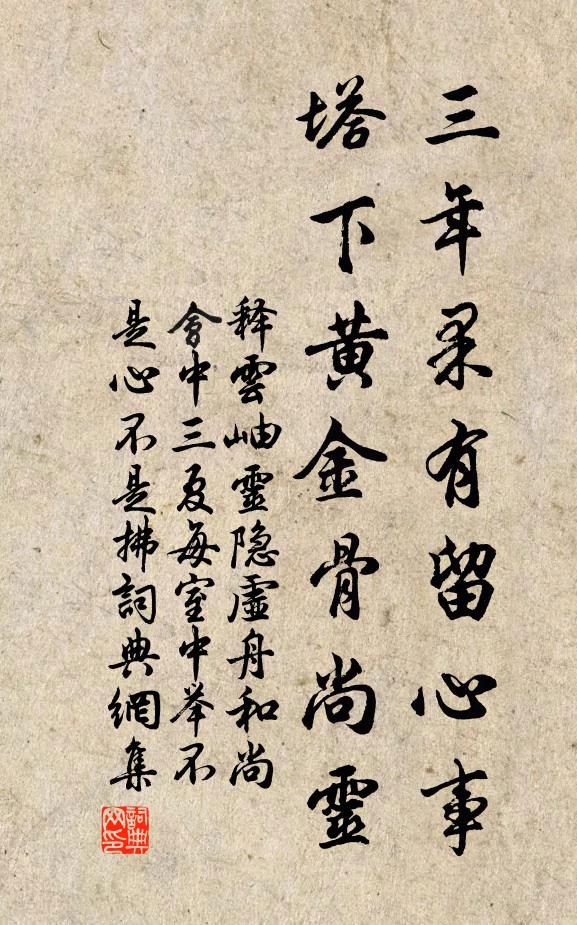 三年果有留心事
塔下黄金骨尚靈
释雲岫靈隐虚舟和尚
會中三夏每室中举不
是心不是拂詞典網集
詞典
网印